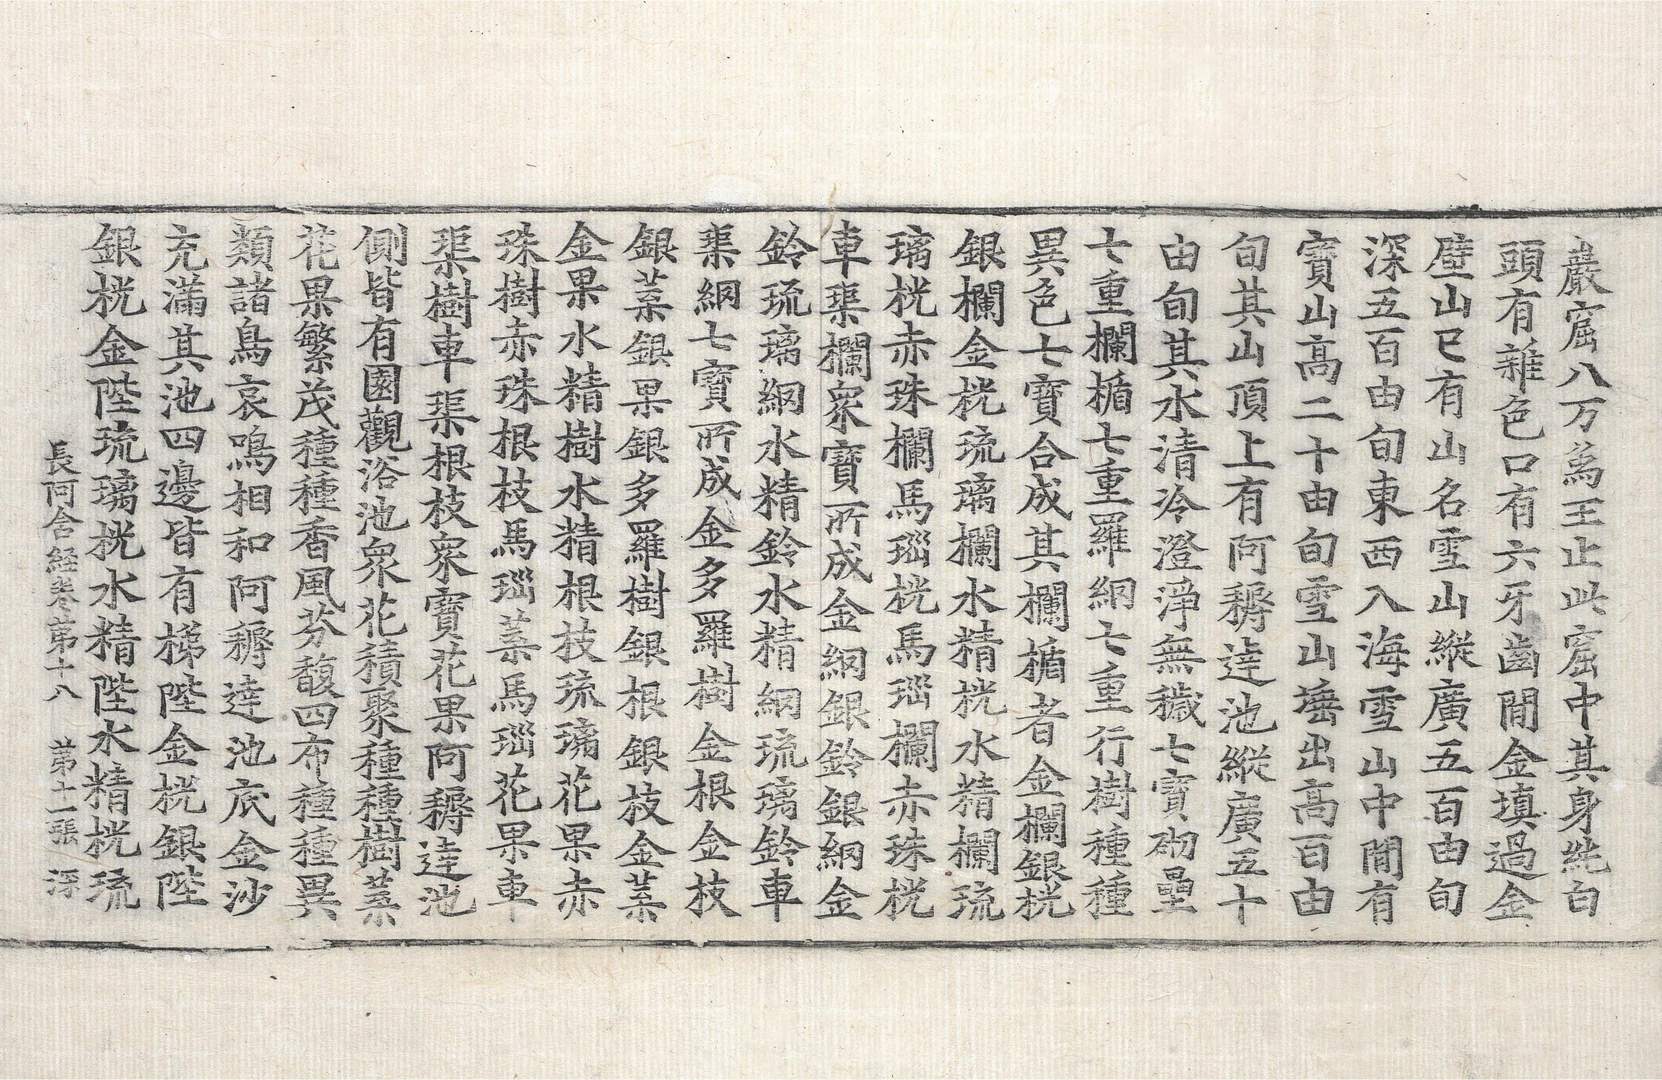 巖窟八万為王止此窟中其身純白
頭有雜色口有六牙齒間金塡過金
壁山已有山名雪山縱廣五百由旬
深五百由旬東西入海雪山中間有
寶山高二十由旬雪山埵出高百由
旬其山頂上有阿耨達池縱廣五十
由旬其水清冷澄淨無穢七寶砌壘
七重欄楯七重羅網七重行樹種種
異色七寶合成其欄楯者金欄銀桄
銀欄金桄琉璃欄水精桄水精欄琉
璃桄赤珠欄馬瑙桄馬瑙欄赤珠桄
車渠欄衆寶所成金網銀鈴銀網金
鈴琉璃網水精鈴水精網琉璃鈴車
渠網七寶所成金多羅樹金根金枝
銀葉銀果銀多羅樹銀根銀枝金葉
金果水精樹水精根枝琉璃花果赤
珠樹赤珠根枝馬瑙葉馬瑙花果車
渠樹車渠根枝衆寶花果阿耨達池
側皆有園觀浴池衆花積聚種種樹葉
花果繁茂種種香風芬馥四布種種異
類諸鳥哀鳴相和阿耨達池底金沙
充滿其池四邊皆有梯陛金桄銀陛
銀桄金陛琉璃桄水精陛水精桄琉
長阿含経卷第十八 第十一張 浮